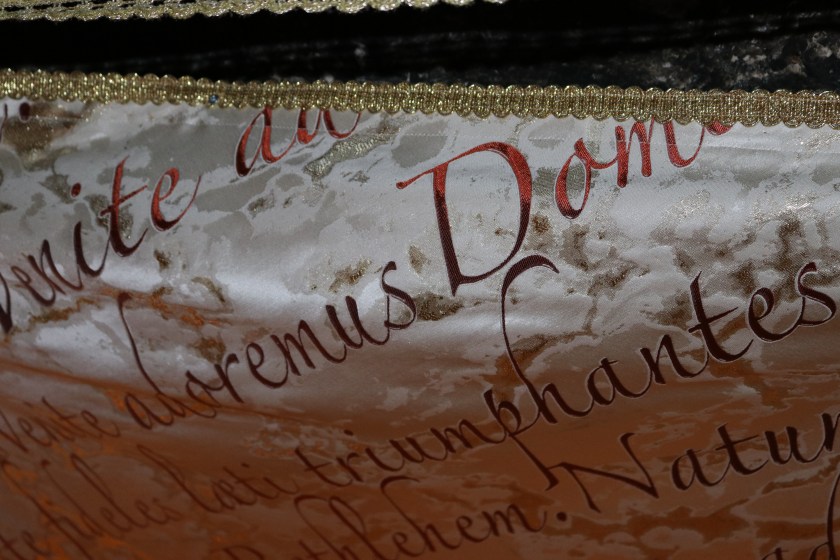 Venite ad
Venite adoremus Dom
te fideles læti triumphantes
Bethlehem. Natu